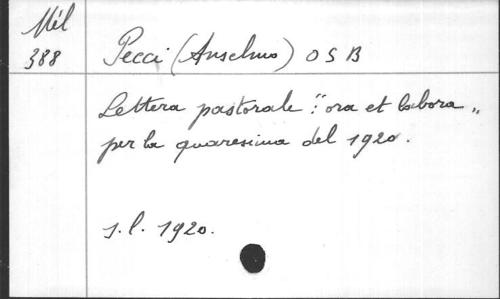 Mél
388
Pecci (Anselmo) O S B
Lettera pastorale : "ora et labora„
per la quaresima del 1920.
s.l. 1920.